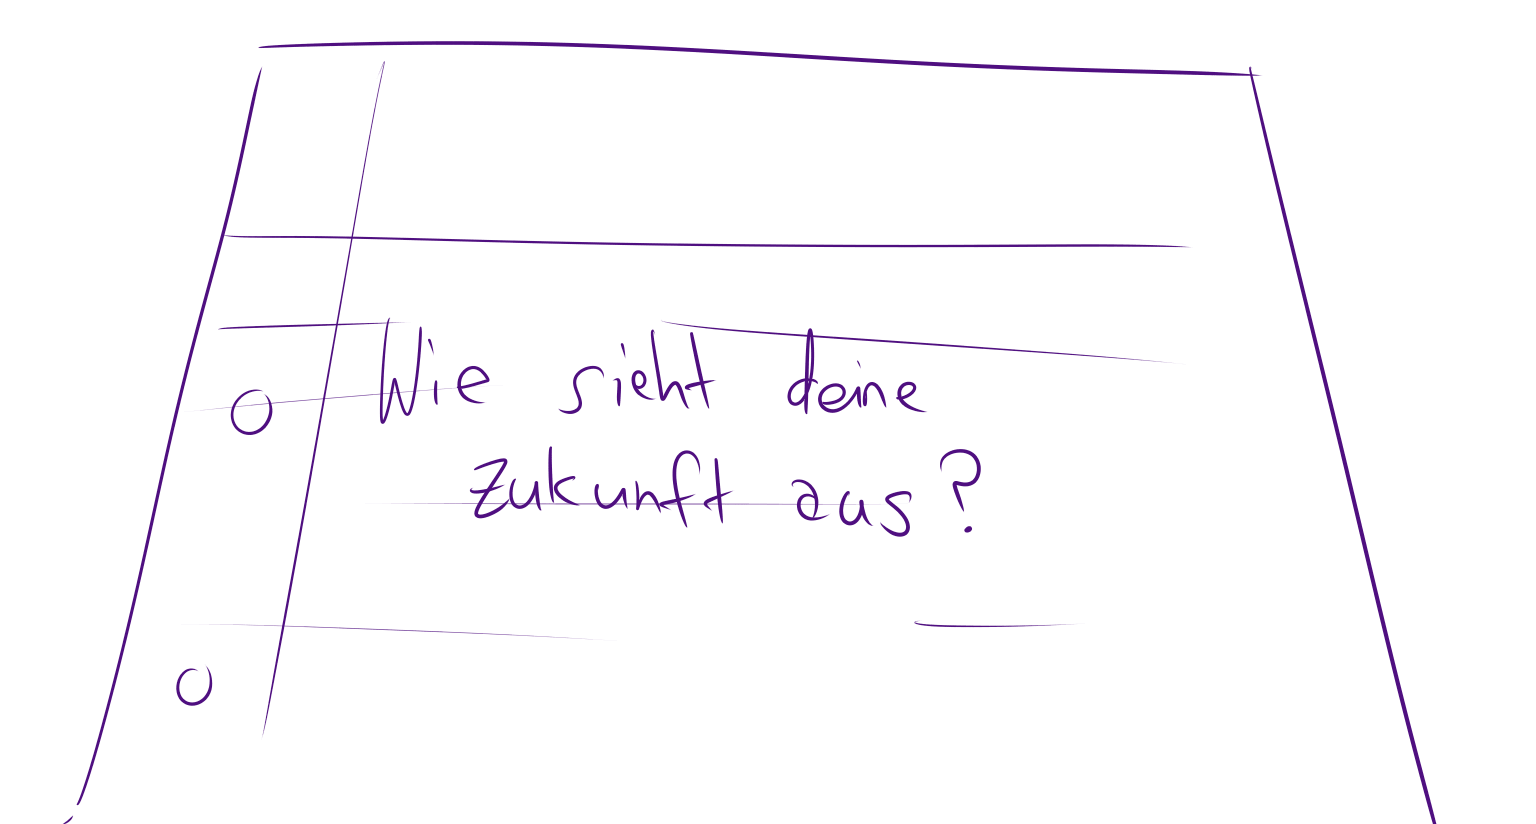 Wie sieht deine
Zukunft aus?